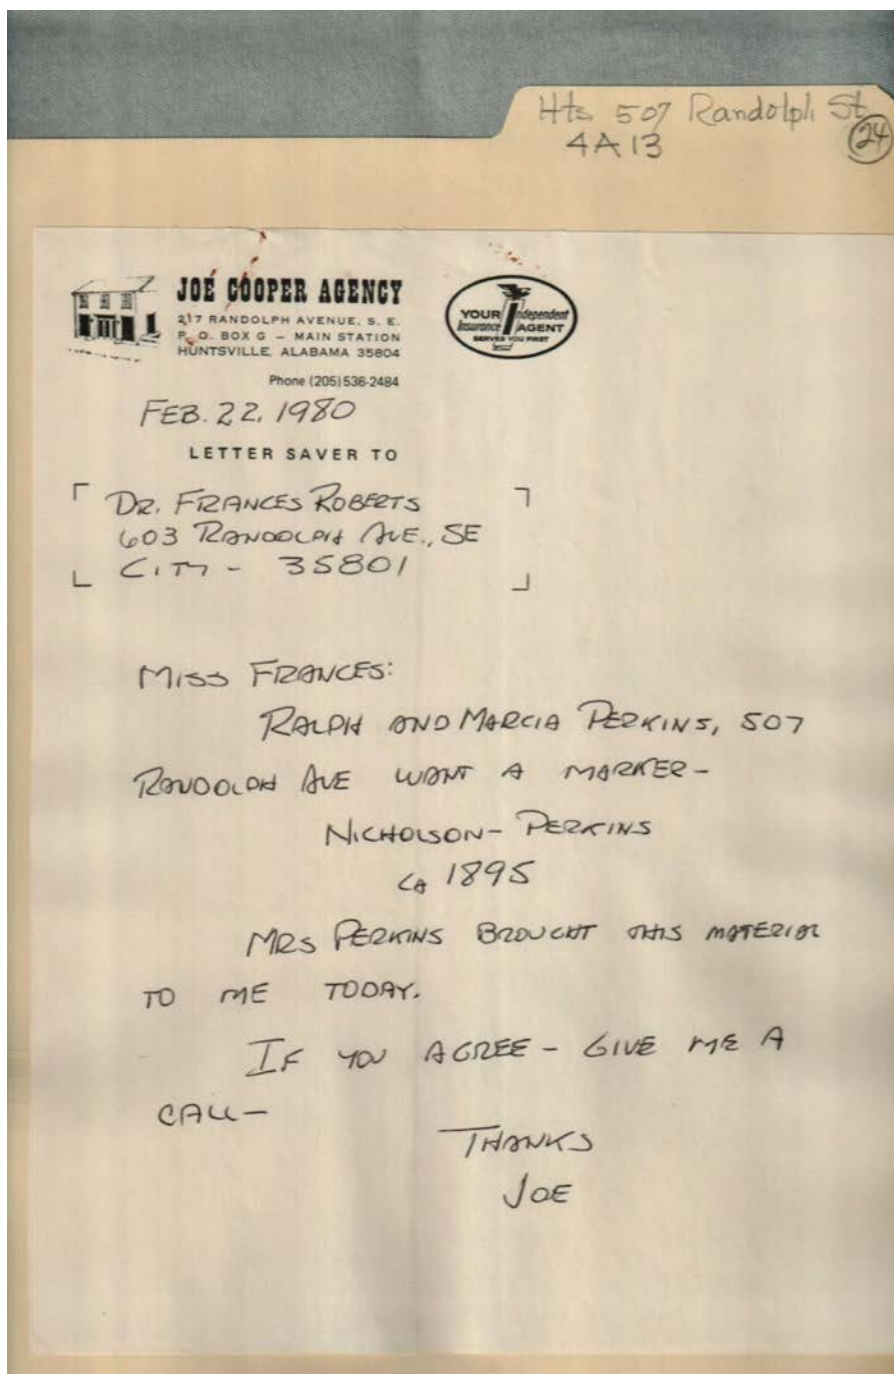 Hts 507 Randolph St
4A13
24
JOE COOPER AGENCY
217 RANDOLPH AVENUE, S. E.
P. O. BOX G – MAIN STATION
HUNTSVILLE, ALABAMA 35804
Phone (205) 536-2484
YOUR Independent
Insurance AGENT
SERVES YOU FIRST
FEB. 22, 1980
LETTER SAVER TO
DR. FRANCES ROBERTS
603 RANDOLPH AVE., SE
CITY - 35801
MISS FRANCES:
RALPH AND MARCIA PERKINS, 507
RANDOLPH AVE WANT A MARKER -
NICHOLSON - PERKINS
CA 1895
MRS PERKINS BROUGHT THIS MATERIAL
TO ME TODAY.
IF YOU AGREE - GIVE ME A
CALL -
THANKS
JOE